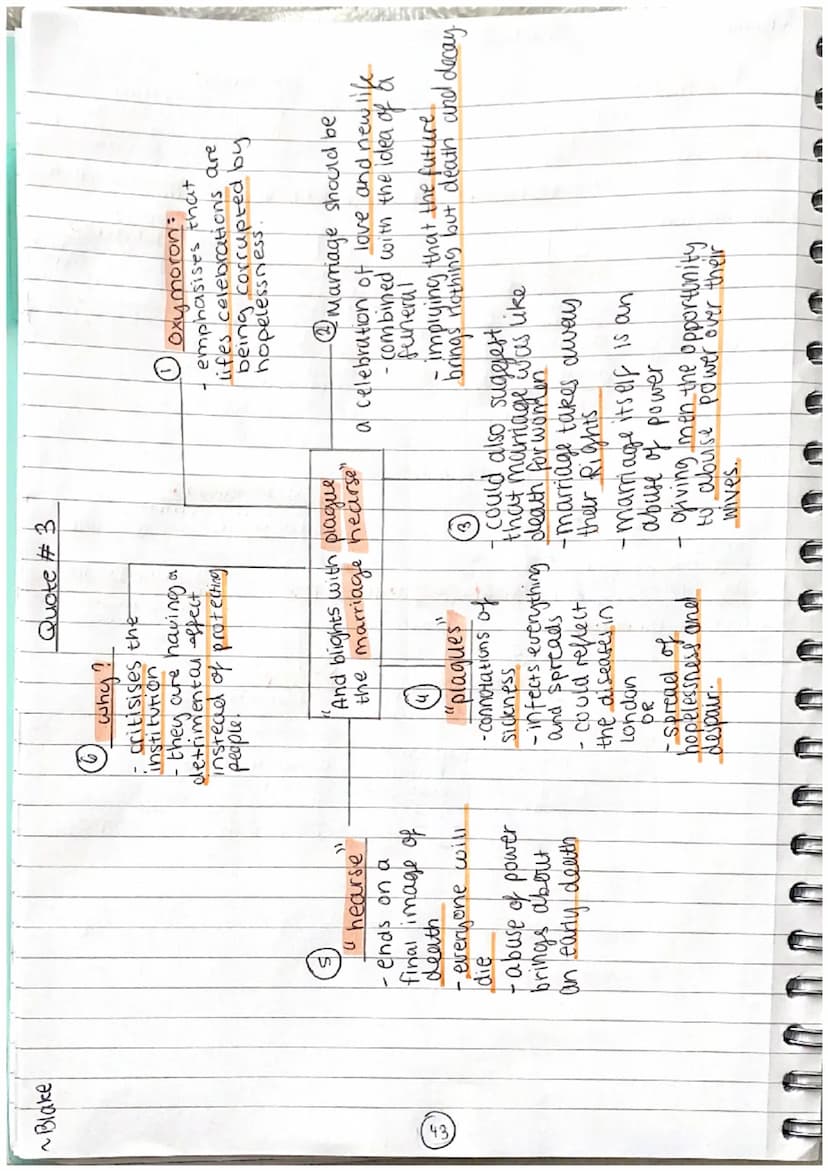 ~Blake
Quote # 3
"And blights with plague
the marriage hearse"
① Oxymoron:
- emphasises that
lifes celebrations are
being corrupted by
hopelessness.
② Marriage should be
a celebration of love and new life
- combined with the idea of a
funeral
- implying that the future
brings nothing but death and decay
③
- could also suggest
that marriage was like
death for women
- marriage takes away
their Rights
- marriage itself is an
abuse of power
- giving men the opportunity
to abuse power over their
wives.
④
"plagues"
- connotations of
sickness
- infects everything
and spreads
- could reflect
the diseases in
London
OR
- spread of
hopelessness and
despair.
⑤
"hearse"
- ends on a
final image of
death
- everyone will
die
- abuse of power
brings about
an early death
⑥ why?
- critisises the
institution
- they are having a
detrimental effect
instead of protecting
people.
43